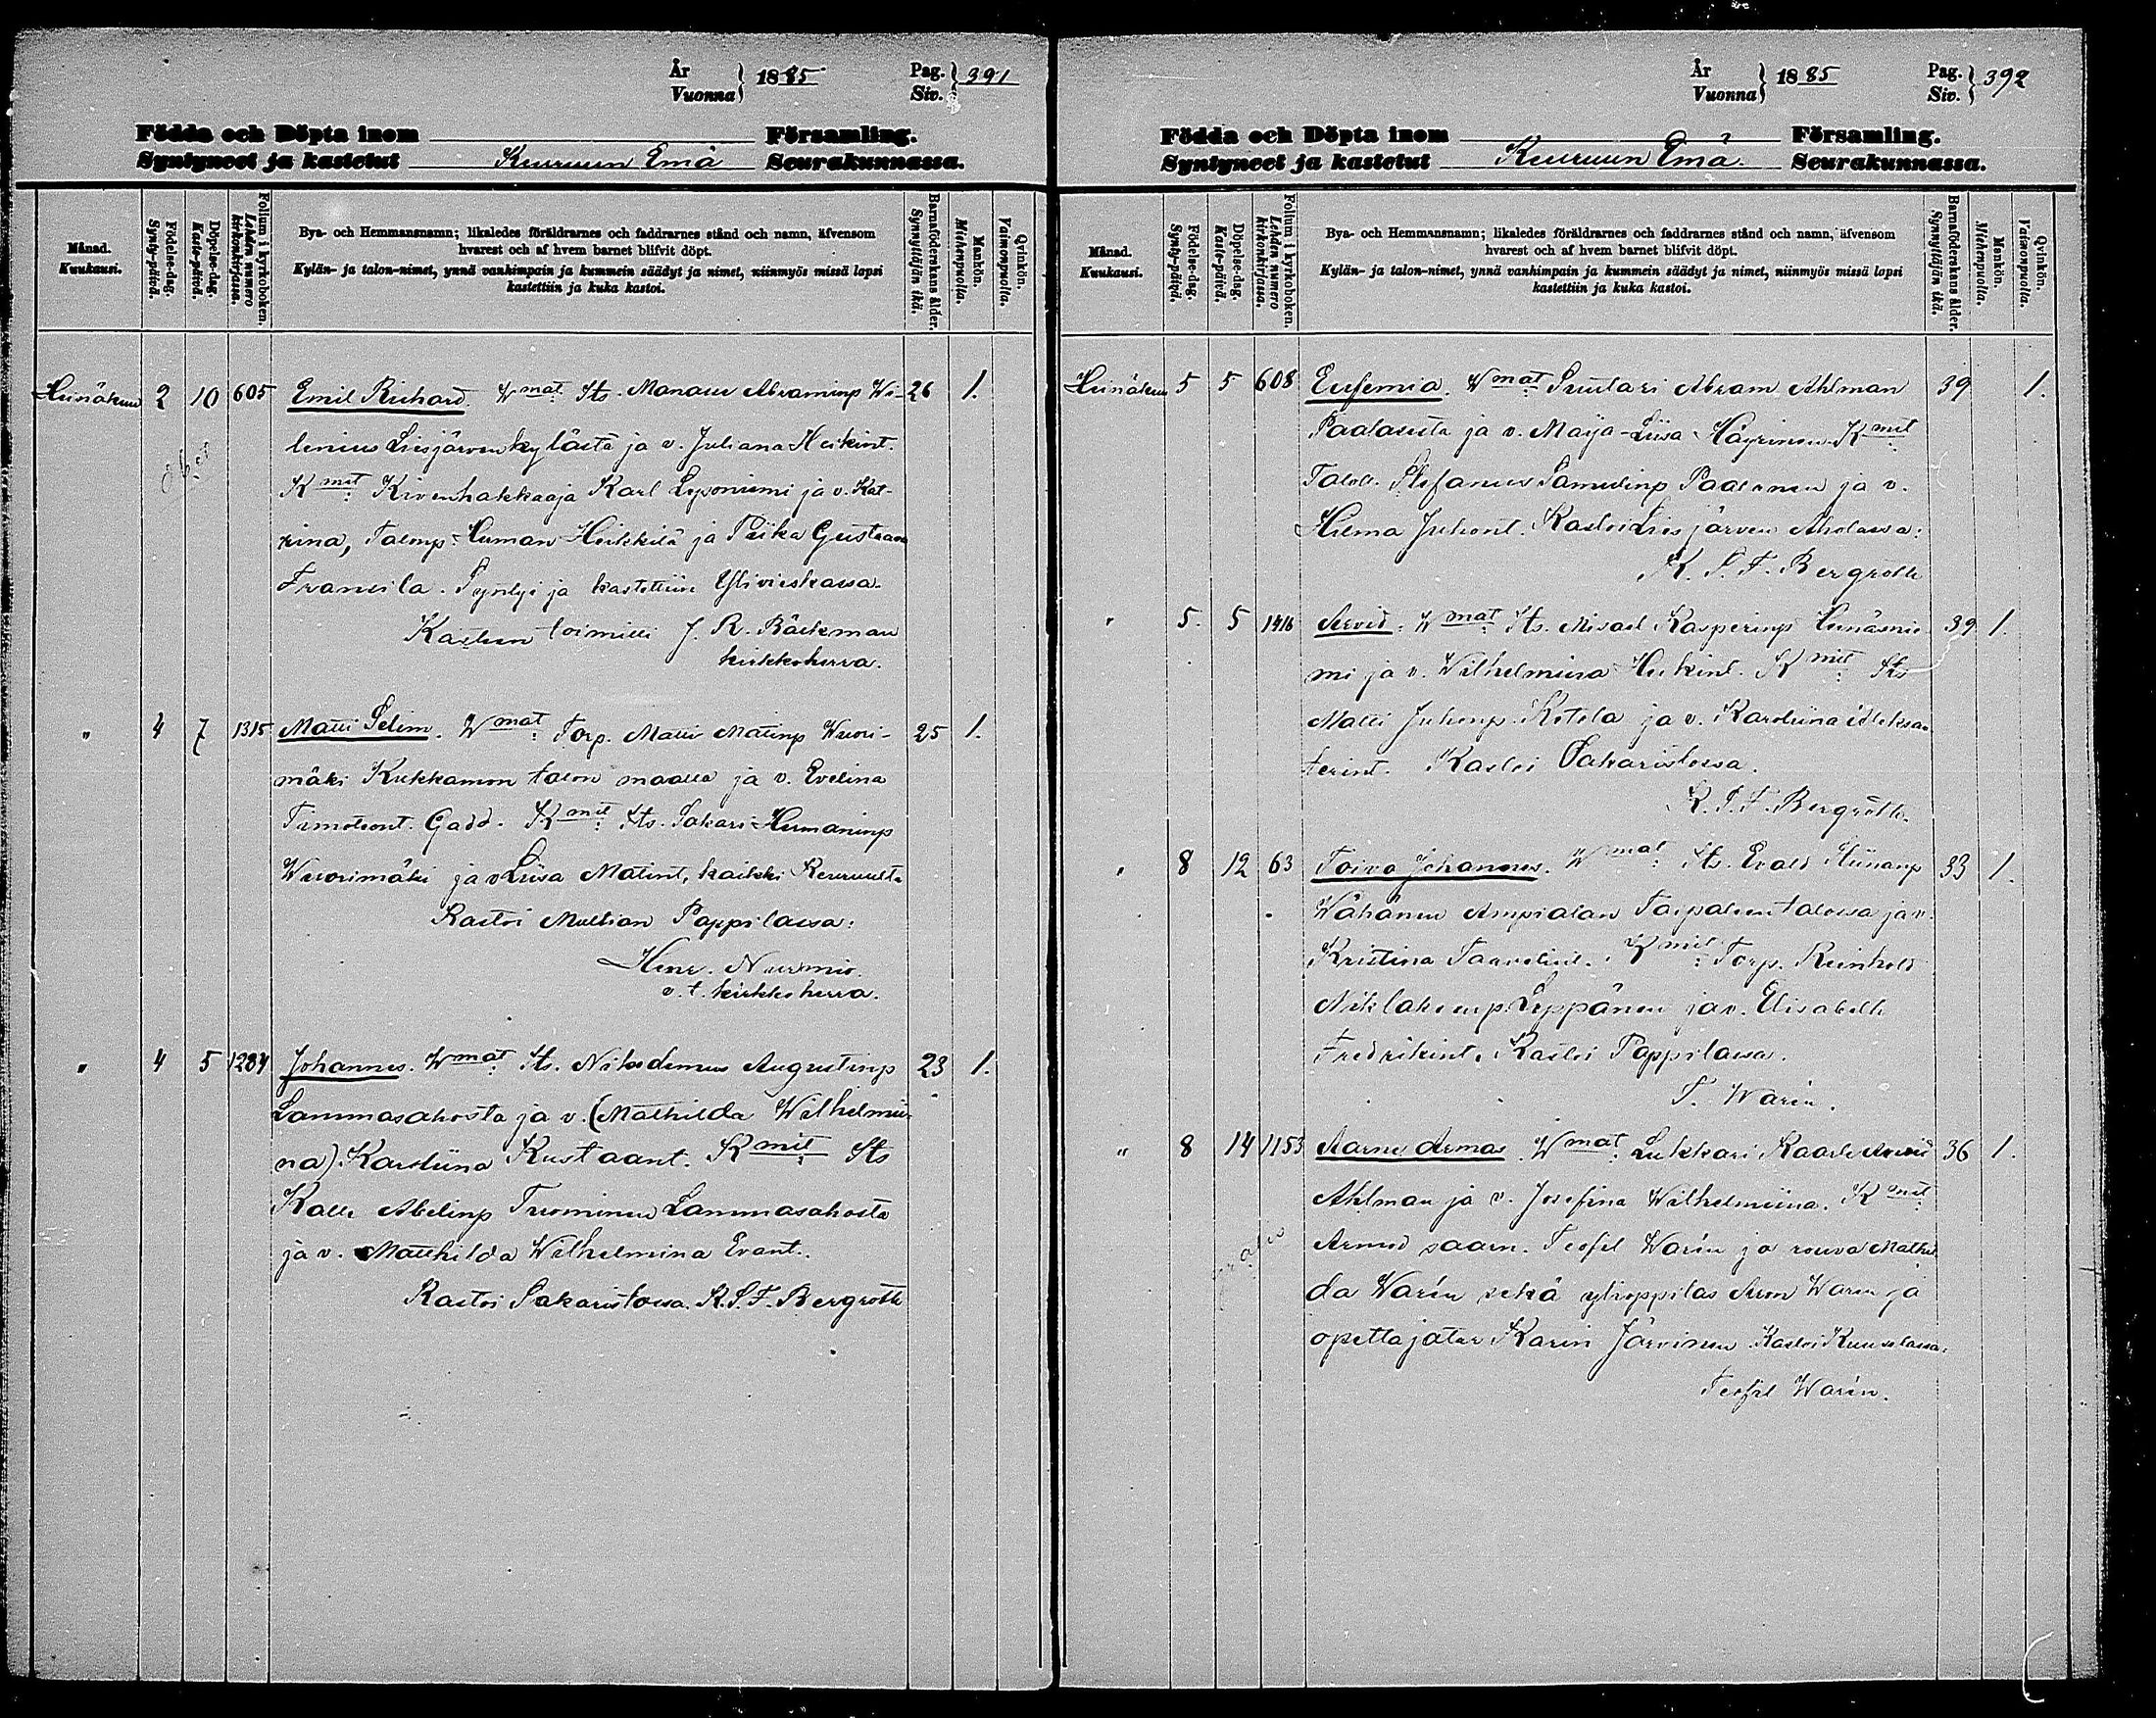 År Vuonna } 1885 Pag. Siv. } 391
Födda och Döpta inom Församling.
Syntyneet ja kastetut Keuruun Emä Seurakunnassa.
Månad. Kuukausi.
Födelse-dag. Synty-päivä.
Döpelse-dag. Kaste-päivä.
Folium i kyrkoboken. Lehden numero kirkonkirjassa.
Bya- och Hemmansnamn; likaledes föräldrarnes och faddrarnes stånd och namn, äfvensom
hvarest och af hvem barnet blifvit döpt.
Kylän- ja talon-nimet, ynnä vanhimpain ja kummein säädyt ja nimet, niinmyös missä lapsi
kastettiin ja kuka kastoi.
Barnaföderskans ålder. Synnyttäjän ikä.
Mankön. Miehenpuolia.
Qvinkön. Vaimonpuolia.
Heinäkuu 2 10 605 Emil Richard. Wmat: Its. Manasse Abraminp Wi- 26 1.
lenius Liesjärven kylästä ja v. Juliana Heikint.
Kmit: Kivenhakkaaja Karl Leponiemi ja v. Kat-
rina, Talonp. Herman Heikkilä ja Piika Gustaava
Fransila. Syntyi ja kastettiin Ylivieskassa.
Kasteen toimitti J. R. Bäckman
kirkkoherra.
" 4 7 1315 Matti Selim. Wmat: Torp. Matti Matinp Wuori- 25 1.
mäki Kukkamon talon maalla ja v. Evelina
Timoteont. Gadd. Kmit: Its. Sakari Hermaninp
Wuorimäki ja v Liisa Matint, kaikki Keuruulta
Kastoi Multian Pappilassa:
Henr. Nurmio.
v.t. kirkkoherra.
" 4 5 1284 Johannes. Wmat: Its. Nikodemus Augustinp 23 1.
Lammasahosta ja v. (Mathilda Wilhelmii-
na) Karoliina Kustaant. Kmit: Its
Kalle Abelinp Tuominen Lammasahosta
ja v. Mathilda Wilhelmina Evant.
Kastoi Sakaristossa. K.S.F. Bergroth
År Vuonna } 1885 Pag. Siv. } 392
Födda och Döpta inom Församling.
Syntyneet ja kastetut Keuruun Emä. Seurakunnassa.
Månad. Kuukausi.
Födelse-dag. Synty-päivä.
Döpelse-dag. Kaste-päivä.
Folium i kyrkoboken. Lehden numero kirkonkirjassa.
Bya- och Hemmansnamn; likaledes föräldrarnes och faddrarnes stånd och namn, äfvensom
hvarest och af hvem barnet blifvit döpt.
Kylän- ja talon-nimet, ynnä vanhimpain ja kummein säädyt ja nimet, niinmyös missä lapsi
kastettiin ja kuka kastoi.
Barnaföderskans ålder. Synnyttäjän ikä.
Mankön. Miehenpuolia.
Qvinkön. Vaimonpuolia.
Heinäkuu 5 5 608 Eufemia. Wmat: Abram Ahlman 39 1.
ja v. Maija-Liisa Häyrinen Kmit:
Taloll. Stefanus Samulinp Paalanen ja v.
Hilma Juhont. Kastoi Liesjärven Aholassa:
K. S. F. Bergroth
" 5. 5 1416 Arvid. Wmat: Its. Misael Kasperinp Heinäsnie- 39 1.
mi ja v. Wilhelmiina Heikint. Kmit: Its
Matti Juhonp. Kotola ja v. Karoliina Aleksan-
terint. Kastoi Sakaristossa.
K. S. F. Bergroth.
" 8 12 63 Toivo Johannes. Wmat: Its. Evald 33 1.
Wähänen Ampialan Taipaleen talossa ja v.
Kristina Taavetint. Kmit: Torp. Reinhold
Niklaksenp. Leppänen ja v. Elisabeth
Fredrikint. Kastoi Pappilassa.
T. Warén.
" 8 14 1153 Aarne Armas. Wmat: Lukkari Kaarle Arvid 36 1.
Ahlman ja v. Josefina Wilhelmiina. Kmit:
Armov. saarn. Teofil Warén ja rouva Mathil-
da Warén sekä ylioppilas Aron Warén ja
opettajatar Karin Järvinen Kastoi Kuuselassa:
Teofil Warén.